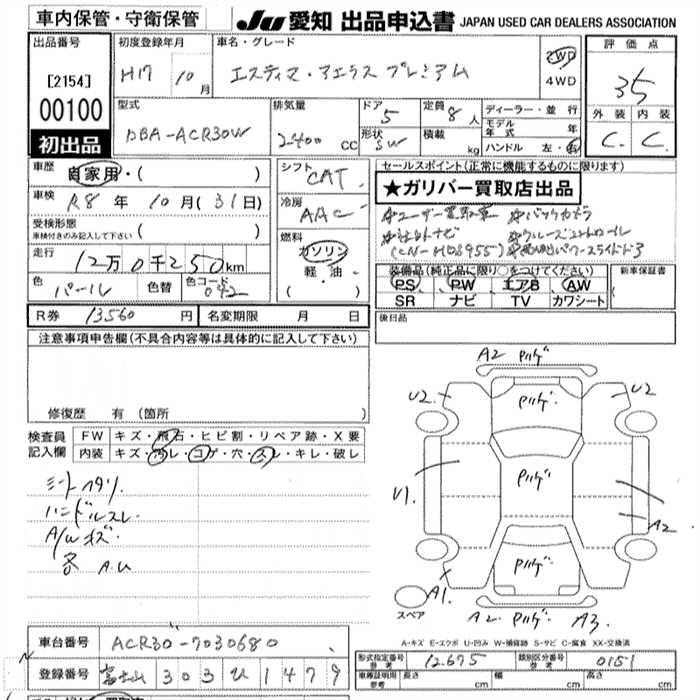 車内保管・守衛保管
JU 愛知 出品申込書 JAPAN USED CAR DEALERS ASSOCIATION
出品番号
[2154]
00100
初出品
初度登録年月
H17 10月
車名・グレード
エスティマ・アエラス プレミアム
2WD
4WD
評価点
35
外装 内装
C. C.
型式
DBA-ACR30W
排気量
2400 CC
ドア 5
形状 SW
定員 8人
積載 kg
ディーラー・並行
モデル年式 年
ハンドル 左・右
車歴 自家用・( )
車検 R8年 10月(31日)
受検形態
車検付きのみ記入して下さい ( )
走行 12万0千250km
色 パール 色替 色コード 042
シフト CAT
冷房 AAC
燃料 ガソリン
軽・油・
( )
セールスポイント(正常に機能するものに限ります)
★ガリバー買取店出品
☆ユーザー買取車 ☆バックカメラ
☆社外ナビ ☆クルーズコントロール
(CN-HDS955) ☆両側パワースライドドア
装備品(純正品に限り○をつけてください)
PS PW エアB AW
SR ナビ TV カワシート
新車保証書
R券 13560円 名変期限 月 日
後日品
注意事項申告欄(不具合内容等は具体的に記入して下さい)
修復歴 有 (箇所
検査員記入欄
FW キズ・飛石・ヒビ割・リペア跡・X要
内装 キズ・汚レ・コゲ・穴・スレ・キレ・破レ
シートヘタリ
ハンドルスレ
A/Wキズ
各 A.U
A2
U2 U2
U1 A2
A1
A2 A3
スペア
A-キズ E-エクボ U-凹み W-補修跡 S-サビ C-腐食 XX-交換済
車台番号 ACR30-7030680
登録番号 富士山 303 ひ 1479
形式指定番号 参考 12675
類別区分番号 参考 0151
車庫証明用参考 長さ cm 幅 cm 高さ cm